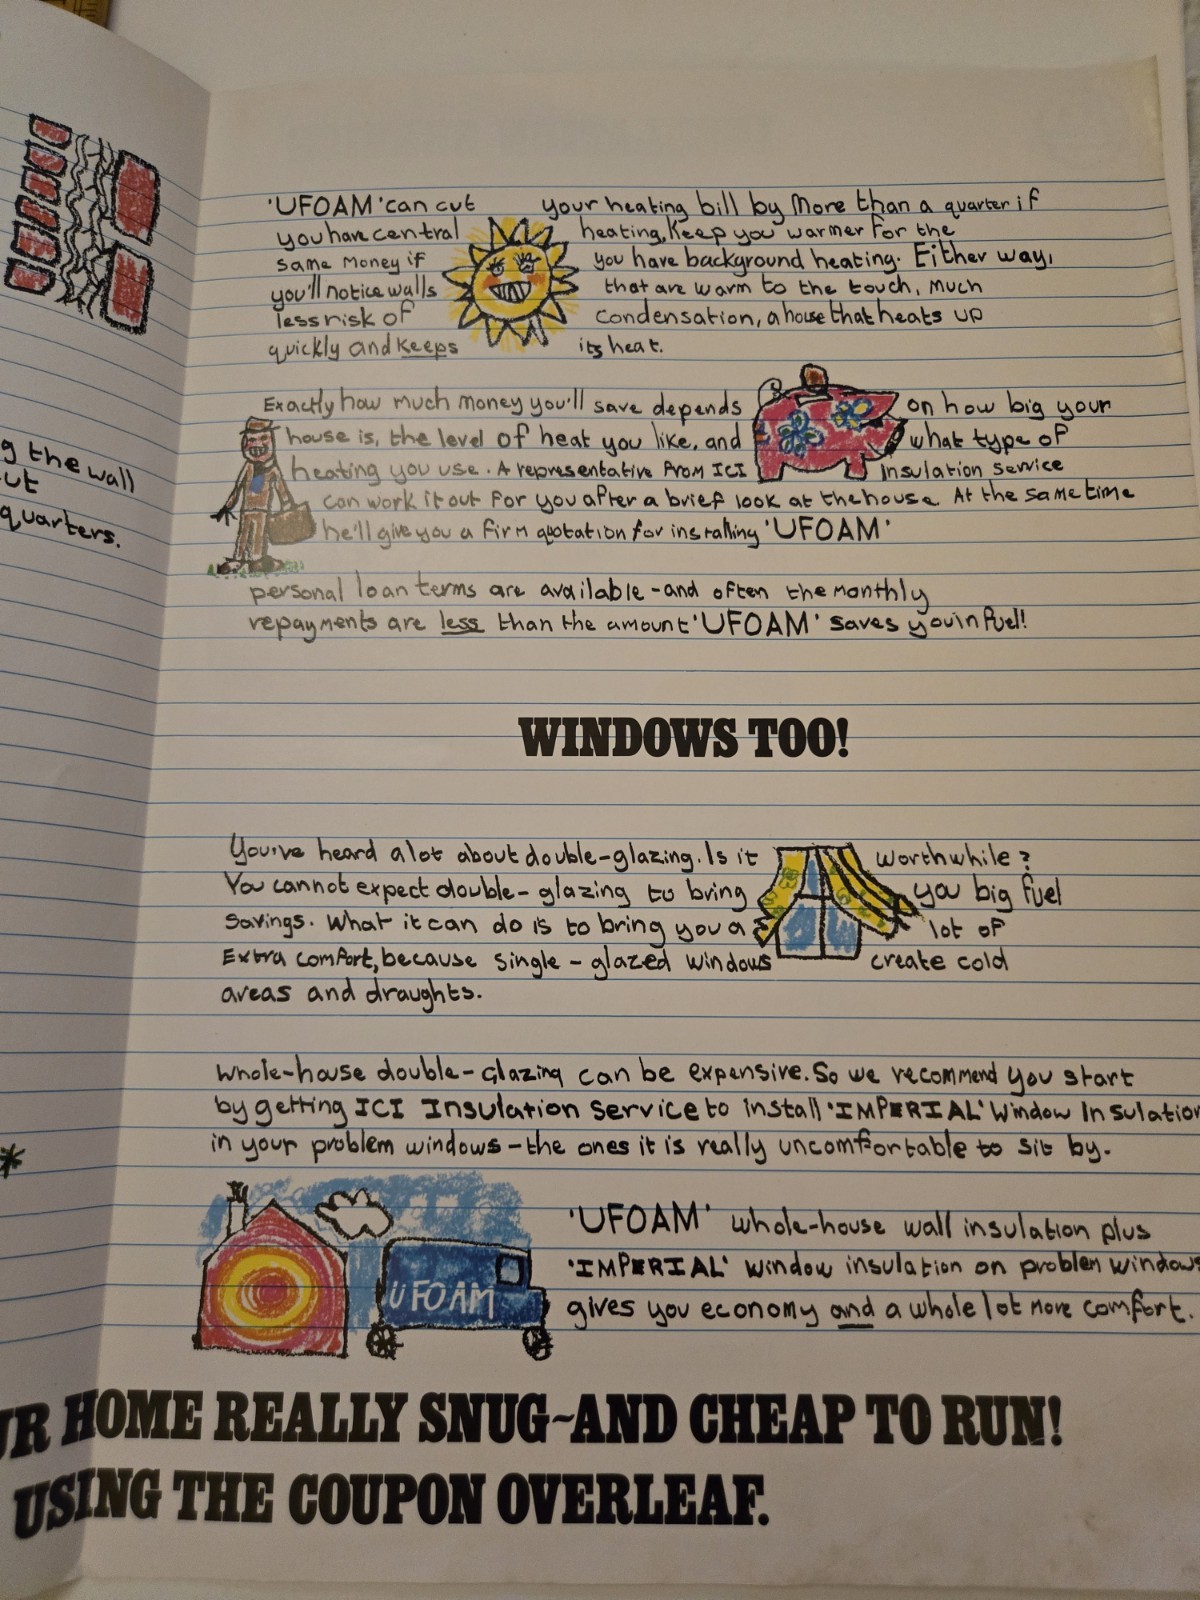 g the wall
ut
quarters.
*
'UFOAM' can cut your heating bill by more than a quarter if
you have central heating, Keep you warmer for the
same money if you have background heating. Either way,
you'll notice walls that are warm to the touch, much
less risk of condensation, a house that heats up
quickly and keeps its heat.
Exactly how much money you'll save depends on how big your
house is, the level of heat you like, and what type of
heating you use. A representative from ICI Insulation Service
can work it out for you after a brief look at the house. At the same time
he'll give you a firm quotation for installing 'UFOAM'
personal loan terms are available - and often the monthly
repayments are less than the amount 'UFOAM' saves you in fuel!
WINDOWS TOO!
You've heard a lot about double-glazing. Is it worthwhile?
You cannot expect double-glazing to bring you big fuel
savings. What it can do is to bring you a lot of
Extra comfort, because single-glazed windows create cold
areas and draughts.
Whole-house double-glazing can be expensive. So we recommend you start
by getting ICI Insulation Service to install 'IMPERIAL' Window Insulation
in your problem windows - the ones it is really uncomfortable to sit by.
UFOAM
'UFOAM' whole-house wall insulation plus
'IMPERIAL' window insulation on problem windows
gives you economy and a whole lot more comfort.
UR HOME REALLY SNUG~AND CHEAP TO RUN!
USING THE COUPON OVERLEAF.